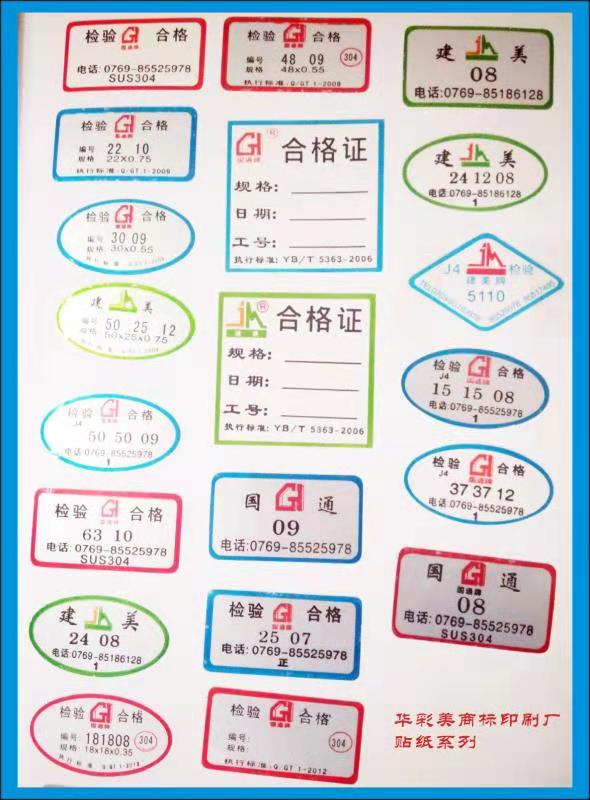 检验 合格
国通牌
电话:0769-85525978
SUS304
检验 合格
国通牌
编号 22 10
规格 22X0.75
执行标准:Q/GT 1-2009
检验 合格
编号 30 09
规格:30x0.55
建 美
编号 50 25 12
规格:50x25x0.75
检验 合格
J4
50 50 09
电话:0769-85525978
1
检验 合格
国通牌
63 10
电话:0769-85525978
SUS304
建 美
24 08
电话:0769-85186128
1
检验 合格
国通牌
编号: 181808
规格: 18x18x0.35
304
检验 合格
国通牌
编号 48 09
规格 48x0.55
304
执行标准:Q/GT 1-2009
GH®
国通牌
合格证
规格:
日期:
工号:
执行标准: YB/T 5363-2006
®
建美
合格证
规格:
日期:
工号:
执行标准: YB/T 5363-2006
国 通
国通牌
09
电话:0769-85525978
检验 合格
国通牌
25 07
电话:0769-85525978
正
检验 合格
国通牌
编号:
规格:
304
执行标准:Q/GT 1-2012
建 美
08
电话:0769-85186128
建 美
24 12 08
电话:0769-85186128
1
J4 检验
建美牌
5110
检验 合格
国通牌
J4
15 15 08
电话:0769-85525978
1
检验 合格
国通牌
J4
37 37 12
电话:0769-85525978
1
国 通
国通牌
08
电话:0769-85525978
SUS304
华彩美商标印刷厂
贴纸系列